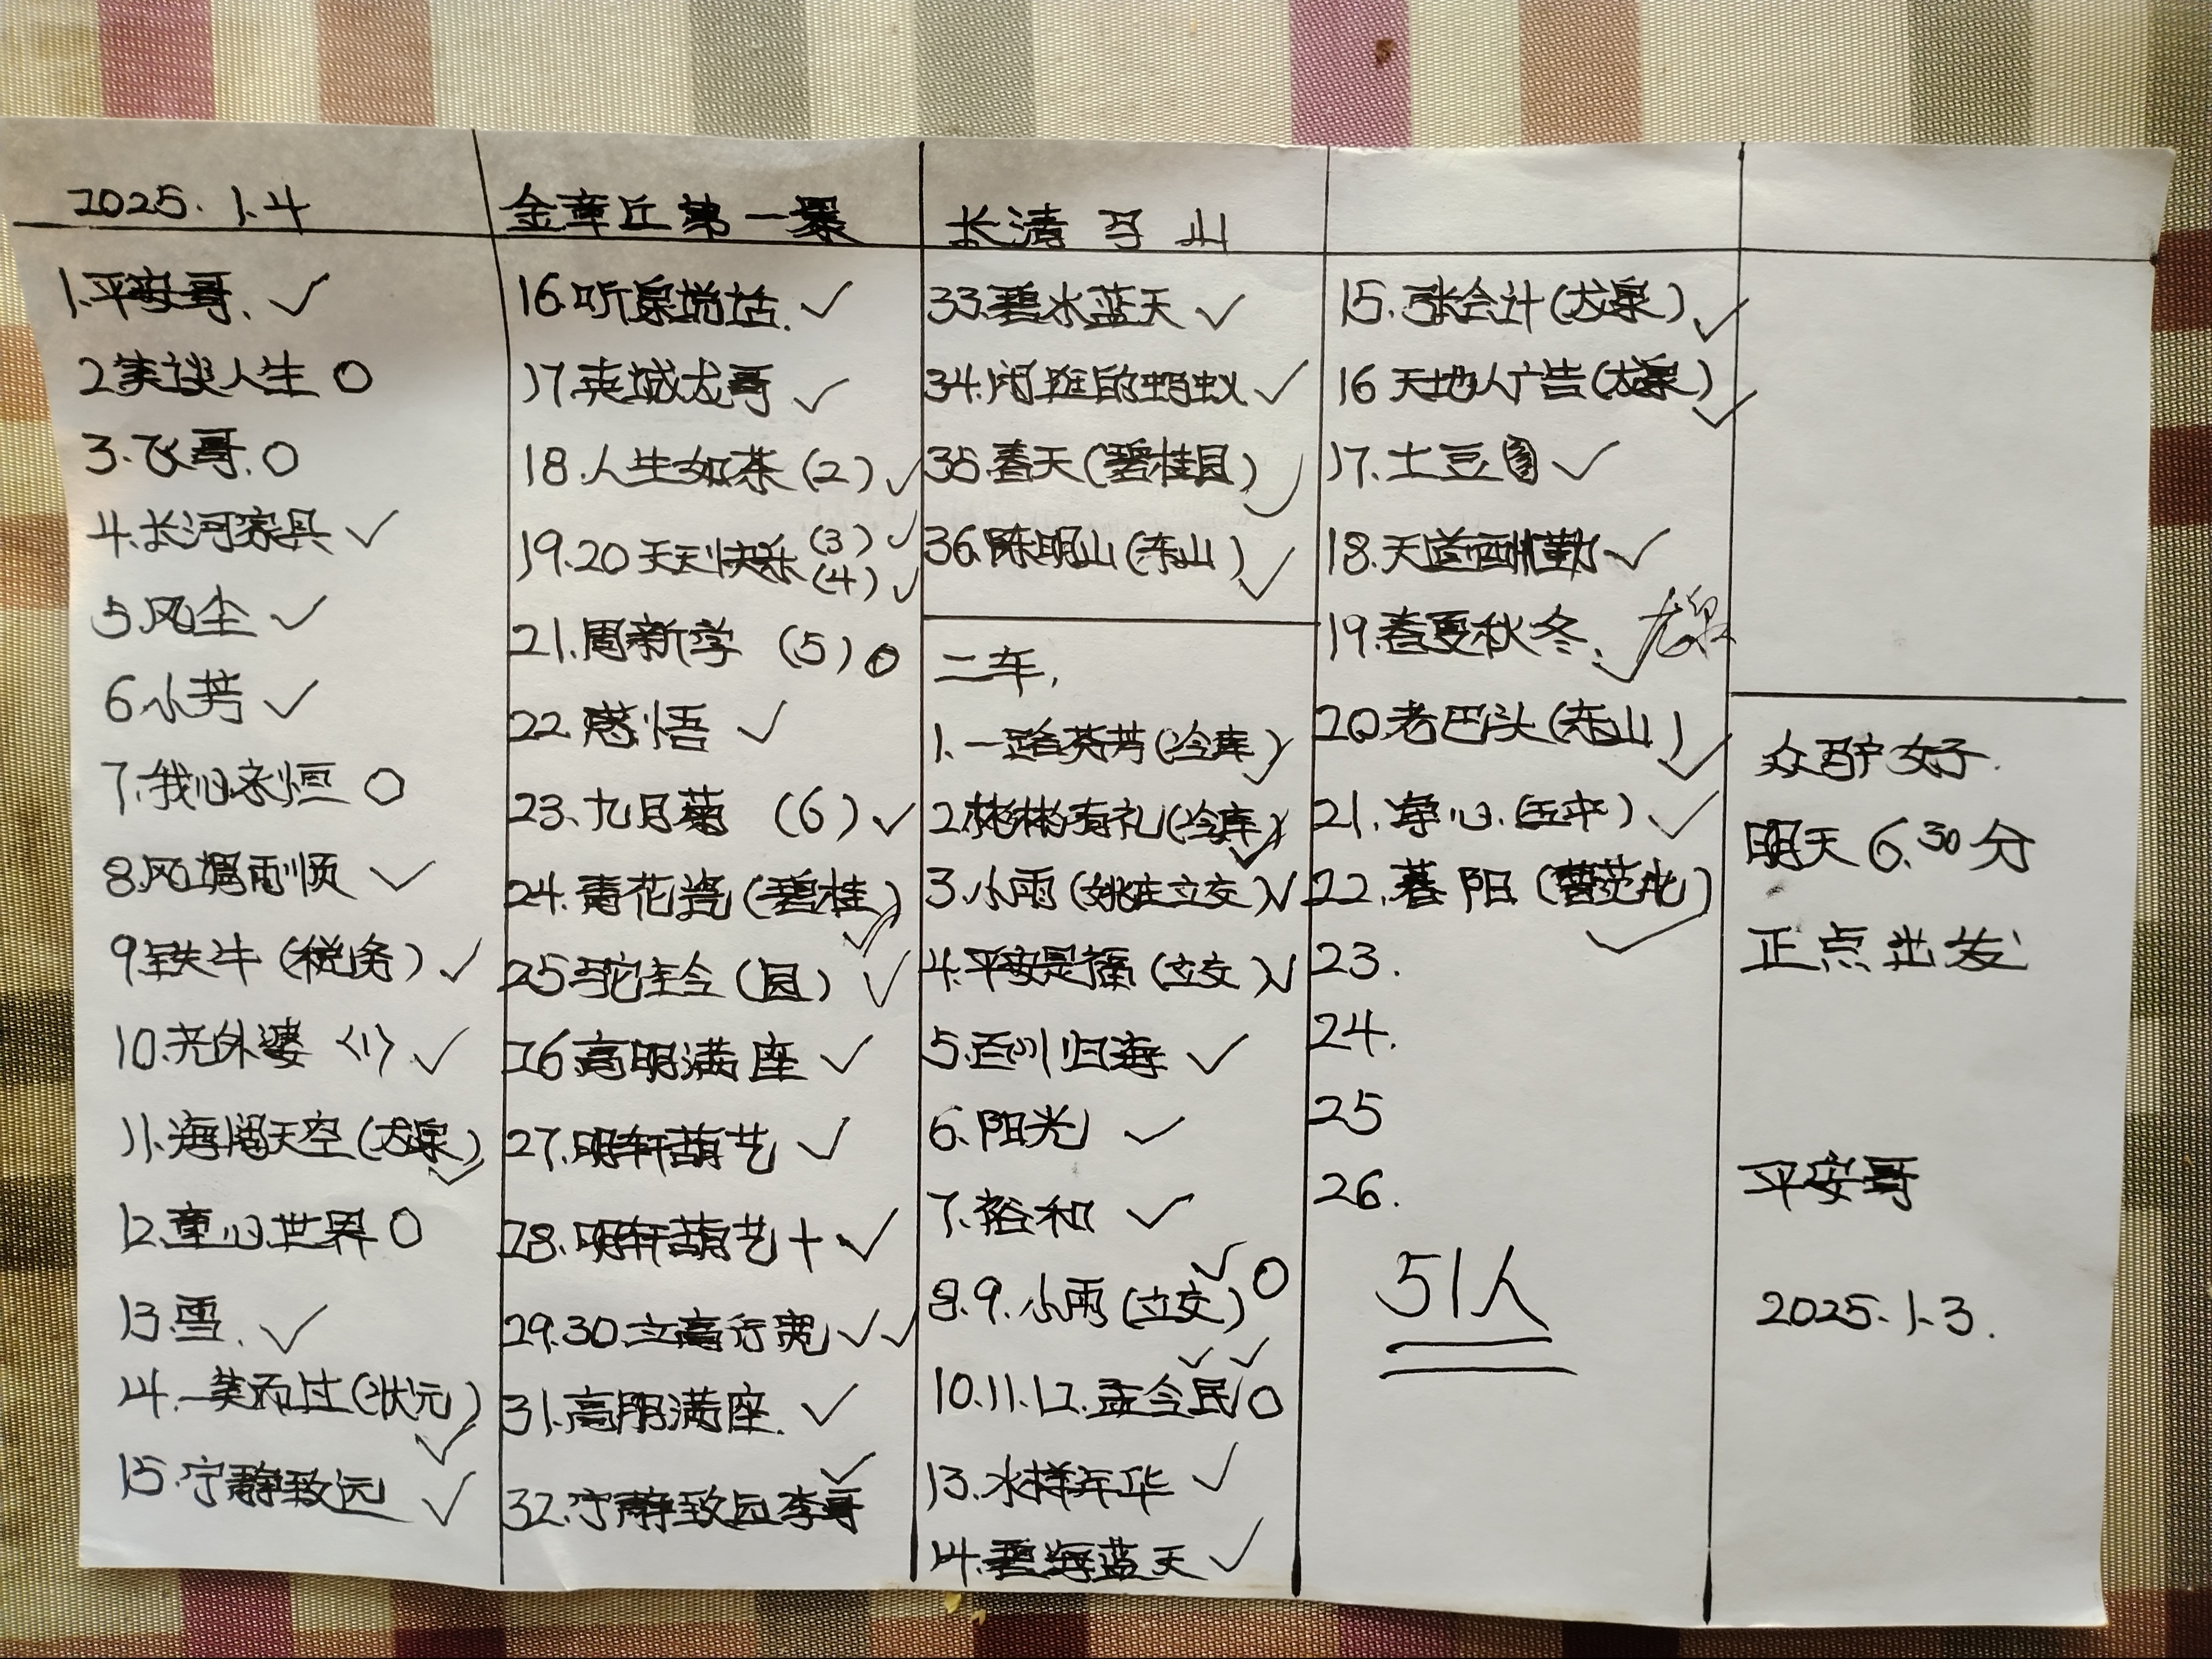 2025.1.4
1.平安哥.✓
2笑谈人生 O
3.飞哥.O
4.长河家具 ✓
5.风尘 ✓
6.小芳 ✓
7.我心永恒 O
8.风调雨顺 ✓
9.铁牛(税务) ✓
10.光外婆〈1〉✓
11.海阔天空(龙泉) ✓
12.童心世界 O
13.雪.✓
14.一笑而过(状元) ✓
15.宁静致远 ✓
金章丘第一暴
16.听泉说话.✓
17.龙哥 ✓
18.人生如茶(2) ✓
19.20天天快乐(3) ✓
(4) ✓
21.周新学 (5) O
22.感悟 ✓
23.九月菊 (6) ✓
24.青花瓷(碧桂) ✓
25驼至今(园) ✓
26.高明满座 ✓
27.明轩葫艺 ✓
28.明轩葫艺+ ✓
29.30.立高行宽 ✓✓
31.高朋满座.✓
32.宁静致远李哥 ✓
长清 马山
33.碧水蓝天 ✓
34.闲逛的蚂蚁 ✓
35.春天(碧桂园) ✓
36.陈明山(东山) ✓
二车.
1.一路芬芳(冷库) ✓
2.彬彬有礼(冷库) ✓
3.小雨(姚庄立交) ✓
4.平安是福(立交) ✓
5.百川归海 ✓
6.阳光 ✓
7.裕和 ✓
8.9.小雨(立交) ✓ O
10.11.12.孟令民 ✓ ✓ O
13.水样年华 ✓
14.碧海蓝天 ✓
15.张会计(龙泉) ✓
16天地人广告(龙泉) ✓
17.土豆 ✓
18.天道酬勤 ✓
19.春夏秋冬.✓ 龙泉
20.老巴头(东山) ✓
21.净心.() ✓
22.暮阳(曹范) ✓
23.
24.
25
26.
51人
众驴友好.
明天6.30分
正点出发
平安哥
2025.1.3.